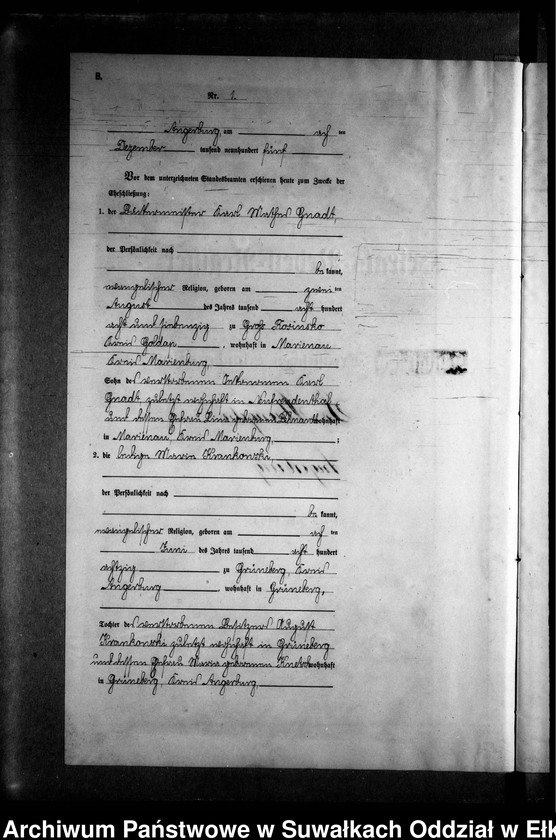 B.
Nr. 1.
Angerburg, am ach ten
Dezember tausend neunhundert fünf
Vor dem unterzeichneten Standesbeamten erschienen heute zum Zwecke der
Eheschließung:
1. der Karl Gnadt,
der Persönlichkeit nach
be kannt,
evangelischer Religion, geboren am zwei ten
August des Jahres tausend acht hundert
acht und siebenzig zu Groß
Kreis Goldap, wohnhaft in Marienau
Kreis Marienburg,
Sohn des verstorbenen Karl
Gnadt, zuletzt wohnhaft in
und dessen Ehefrau geborenen wohnhaft
in Marienau, Kreis Marienburg, ;
2. die ledige Maria Krankowski,
der Persönlichkeit nach
be kannt,
evangelischer Religion, geboren am ach ten
Juni des Jahres tausend acht hundert
achtzig zu Grüneberg, Kreis
Angerburg, wohnhaft in Grüneberg,
Tochter des verstorbenen Besitzers August
Krankowski zuletzt wohnhaft in Grüneberg
und dessen Ehefrau Maria geborenen wohnhaft
in Grüneberg, Kreis Angerburg,
Archiwum Państwowe w Suwałkach Oddział w Ełk